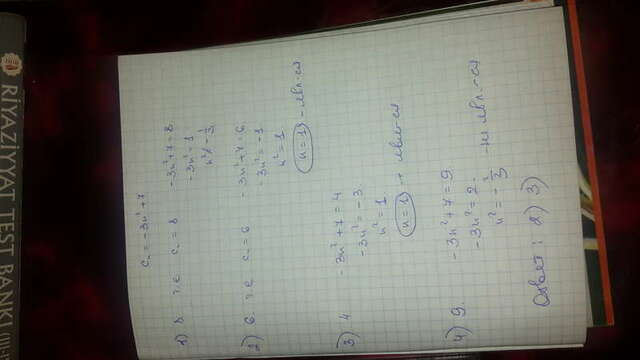 RİYAZİYYAT TEST BANKI
cₙ = -3n² + 7
1) 8 т.е cₙ = 8 -3n² + 7 = 8
-3n² = 1
n² = -1/3
2) 6 т.е cₙ = 6 -3n² + 7 = 6
-3n² = -1
n² = 1
n = 1 - явл-ся
3) 4 -3n² + 7 = 4
-3n² = -3
n² = 1
n = 1 - явл-ся
4) 9. -3n² + 7 = 9
-3n² = 2
n² = -2/3 - не явл-ся
Ответ: 2) 3)